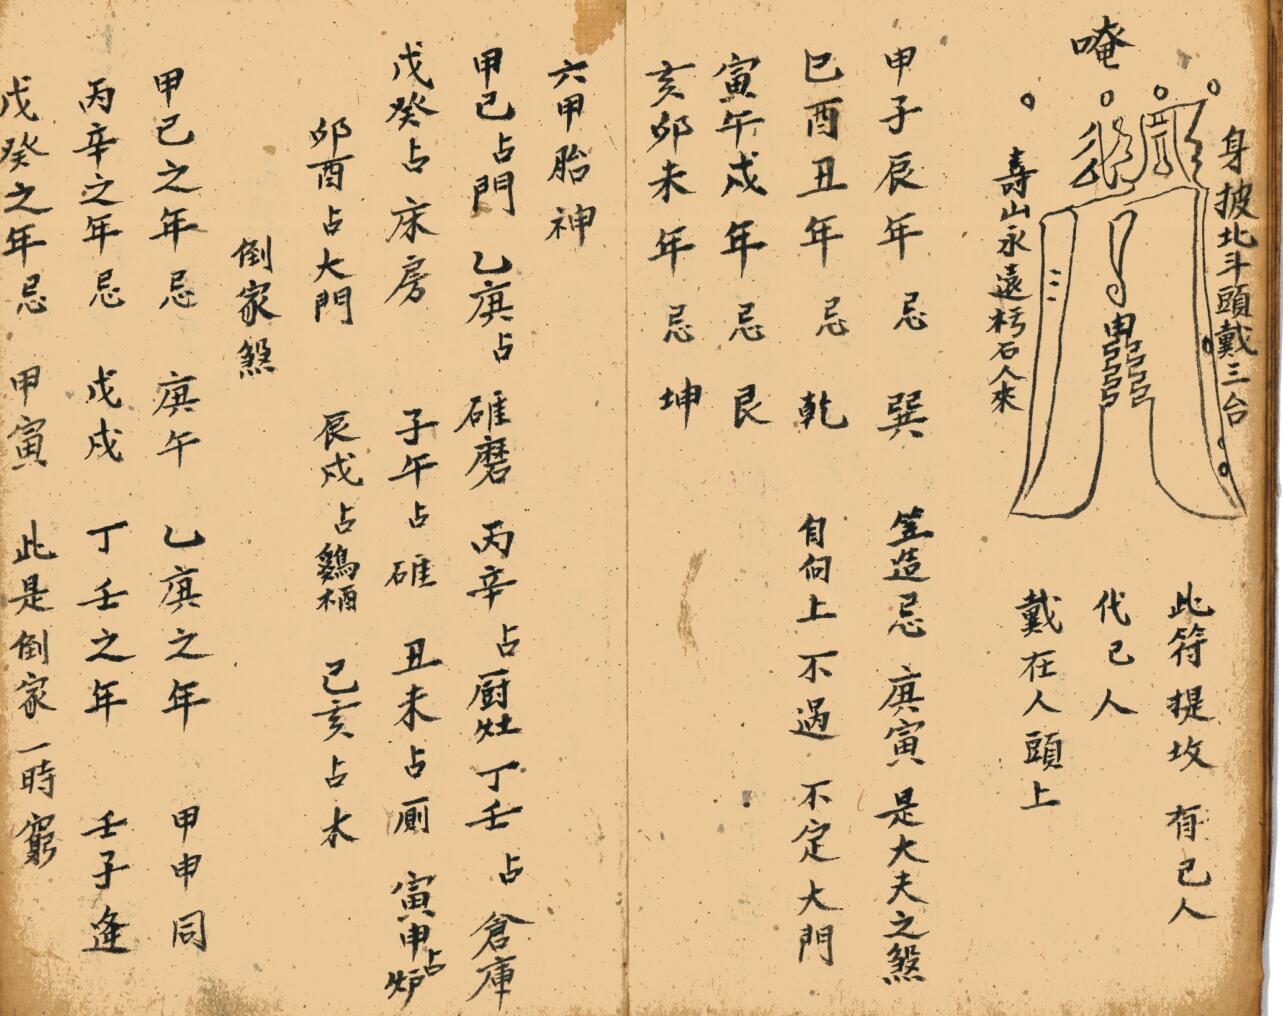 唵
身披北斗頭戴三台
壽山永遠朽石人來
此符提坟 有已人
代已人
戴在人頭上
甲子辰年 忌 巽 笁造忌 庚寅 是大夫之煞
巳酉丑年 忌 乾 自向上不過 不定大門
寅午戌年 忌 艮
亥卯未年 忌 坤
六甲胎神
甲己占門 乙庚占 碓磨 丙辛占厨灶 丁壬占倉庫
戊癸占床房 子午占碓 丑未占厠 寅申占炉
卯酉占大門 辰戌占鷄栖 己亥占木
倒家煞
甲己之年忌 庚午 乙庚之年 甲申同
丙辛之年忌 戊戌 丁壬之年 壬子逢
戊癸之年忌 甲寅 此是倒家一時窮